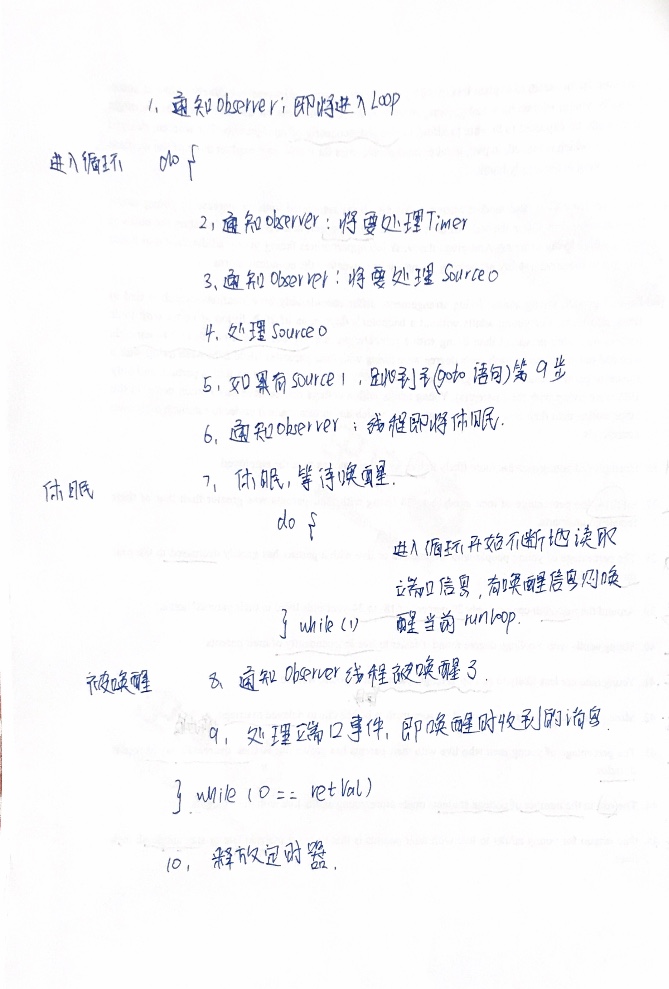 1、通知Observer：即将进入Loop
进入循环 do {
2、通知Observer：将要处理Timer
3、通知Observer：将要处理Source0
4、处理Source0
5、如果有source1，跳到(goto 语句)第9步
6、通知Observer：线程即将休眠.
休眠 7、休眠，等待唤醒.
do {
进入循环开始不断地读取
端口信息，有唤醒信息则唤
} while (1) 醒当前 runloop.
被唤醒 8、通知Observer线程被唤醒了.
9、处理端口事件，即唤醒时收到的消息.
} while (0 == retVal)
10、释放定时器.